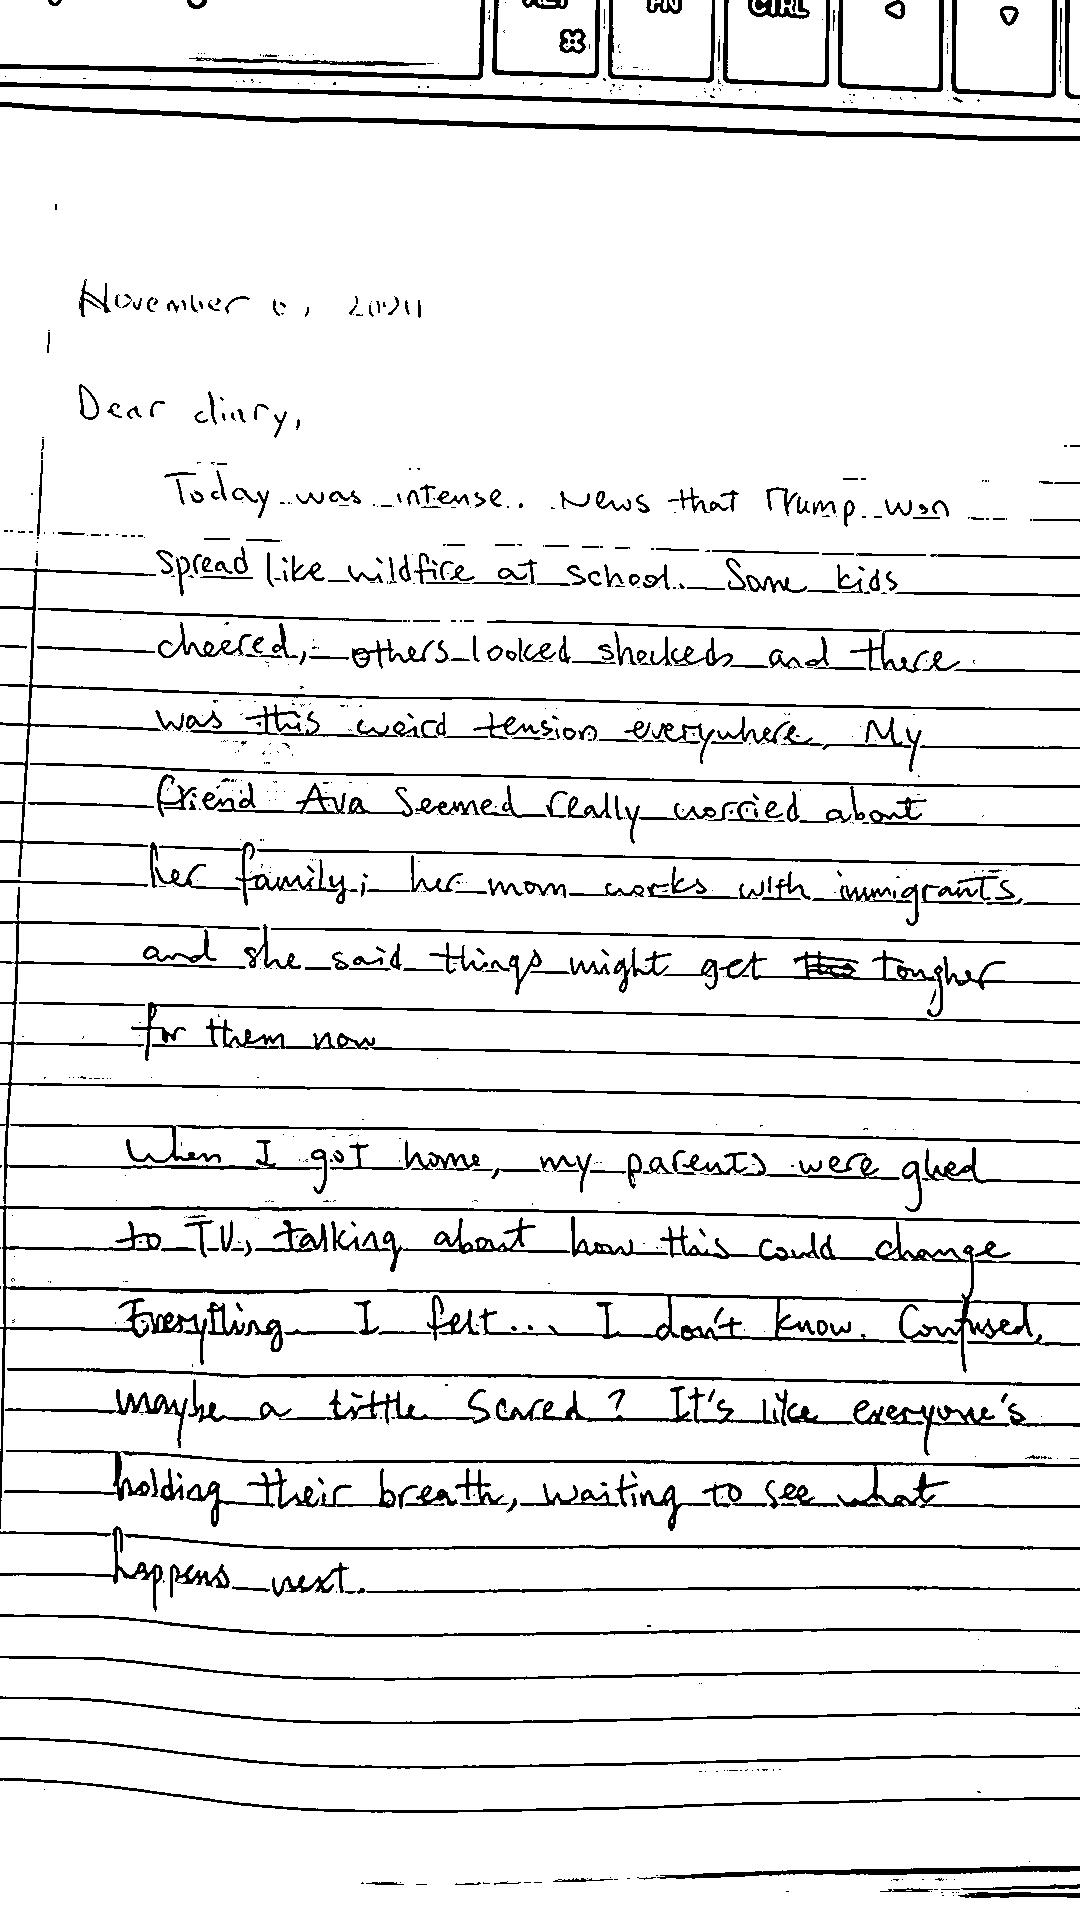 ALT
FN
CTRL
November
Dear diary,
Today was intense. News that Trump won
spread like wildfire at school. Some kids
cheered, others looked shocked and there
was this weird tension everywhere. My
friend Ava seemed really worried about
her family; her mom works with immigrants,
and she said things might get tougher
for them now
When I got home, my parents were glued
to TV, talking about how this could change
Everything I felt... I don't know. Confused,
maybe a little scared? It's like everyone's
holding their breath, waiting to see what
happens next.